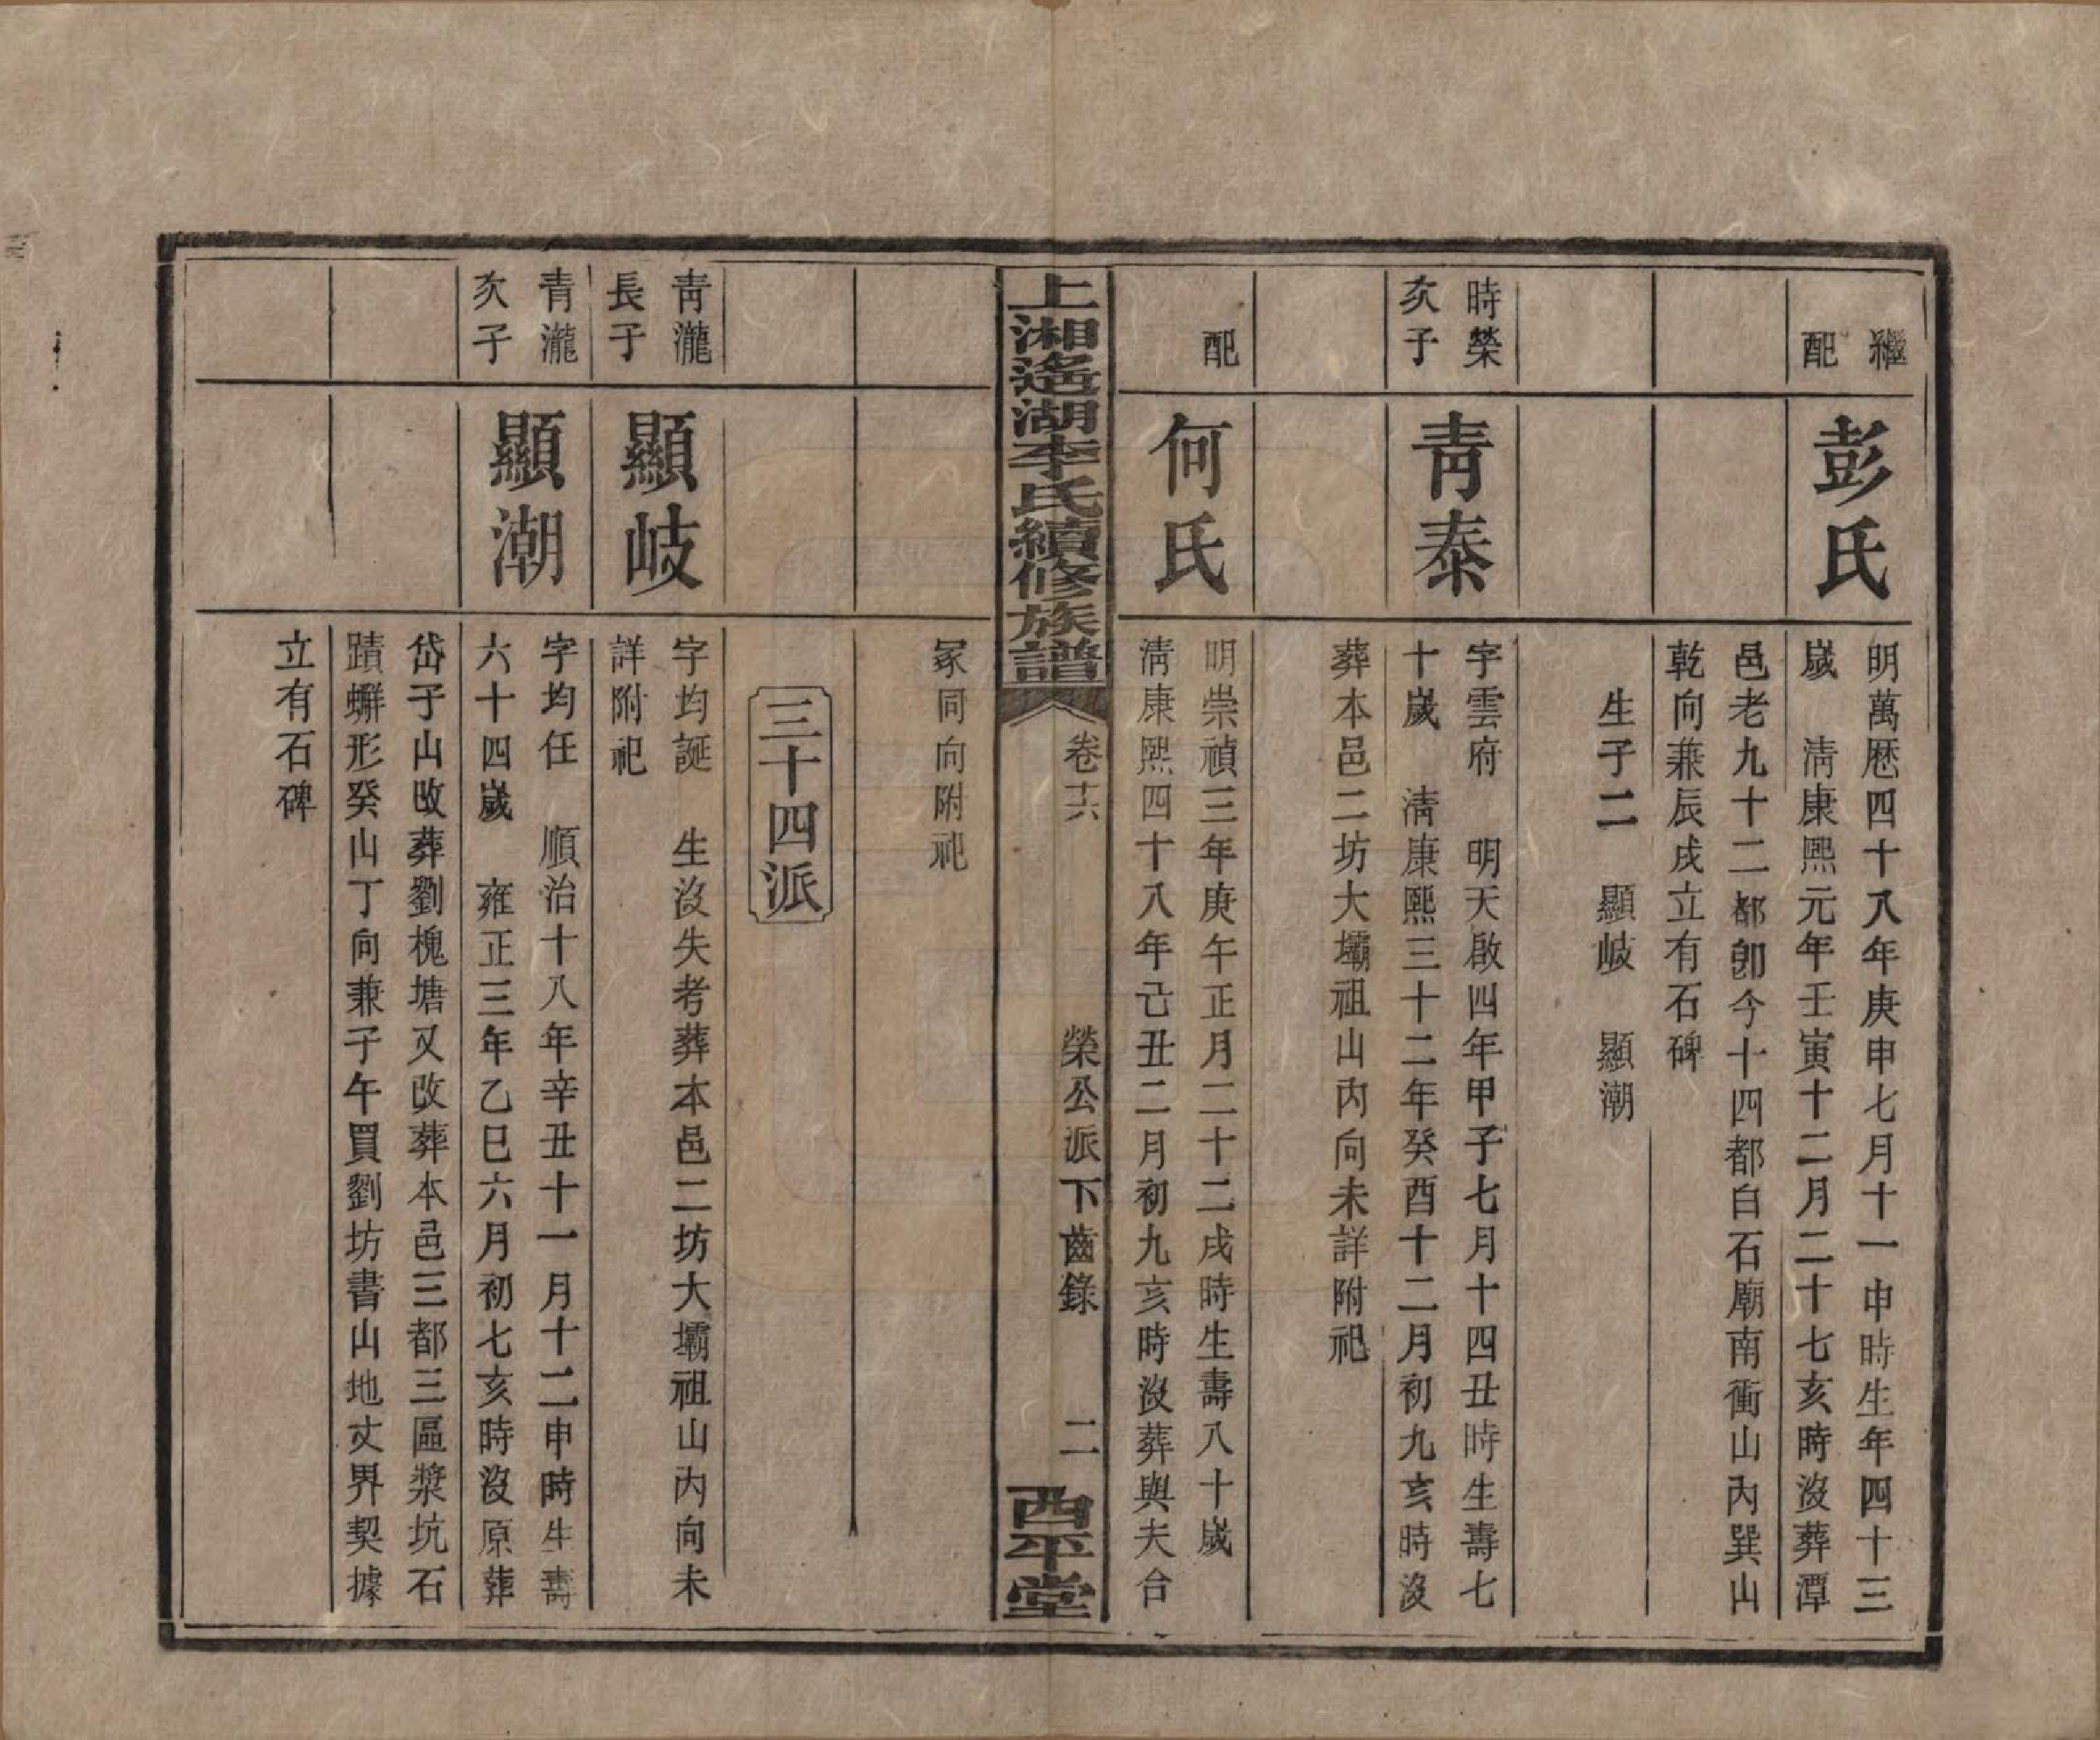 繼配
彭氏
明萬厯四十八年庚申七月十一申時生年四十三
歲 清康熙元年壬寅十二月二十七亥時沒葬潭
邑老九十二都卽今十四都白石廟南衝山內巽山
乾向兼辰戌立有石碑
生子二 顯岐 顯潮
時榮
次子
青泰
字雲府 明天啟四年甲子七月十四丑時生壽七
十歲 清康熙三十二年癸酉十二月初九亥時沒
葬本邑二坊大壩祖山內向未詳附祀
配
何氏
明崇禎三年庚午正月二十二戌時生壽八十歲
清康熙四十八年己丑二月初九亥時沒葬與夫合
上湘遙湖李氏續修族譜
卷十六
榮公派下齒錄
二
西平堂
冢同向附祀
三十四派
青瀧
長子
顯岐
字均誕 生沒失考葬本邑二坊大壩祖山內向未
詳附祀
青瀧
次子
顯潮
字均任 順治十八年辛丑十一月十二申時生壽
六十四歲 雍正三年乙巳六月初七亥時沒原葬
岱子山改葬劉槐塘又改葬本邑三都三區漿坑石
蹟蠏形癸山丁向兼子午買劉坊書山地丈界契據
立有石碑